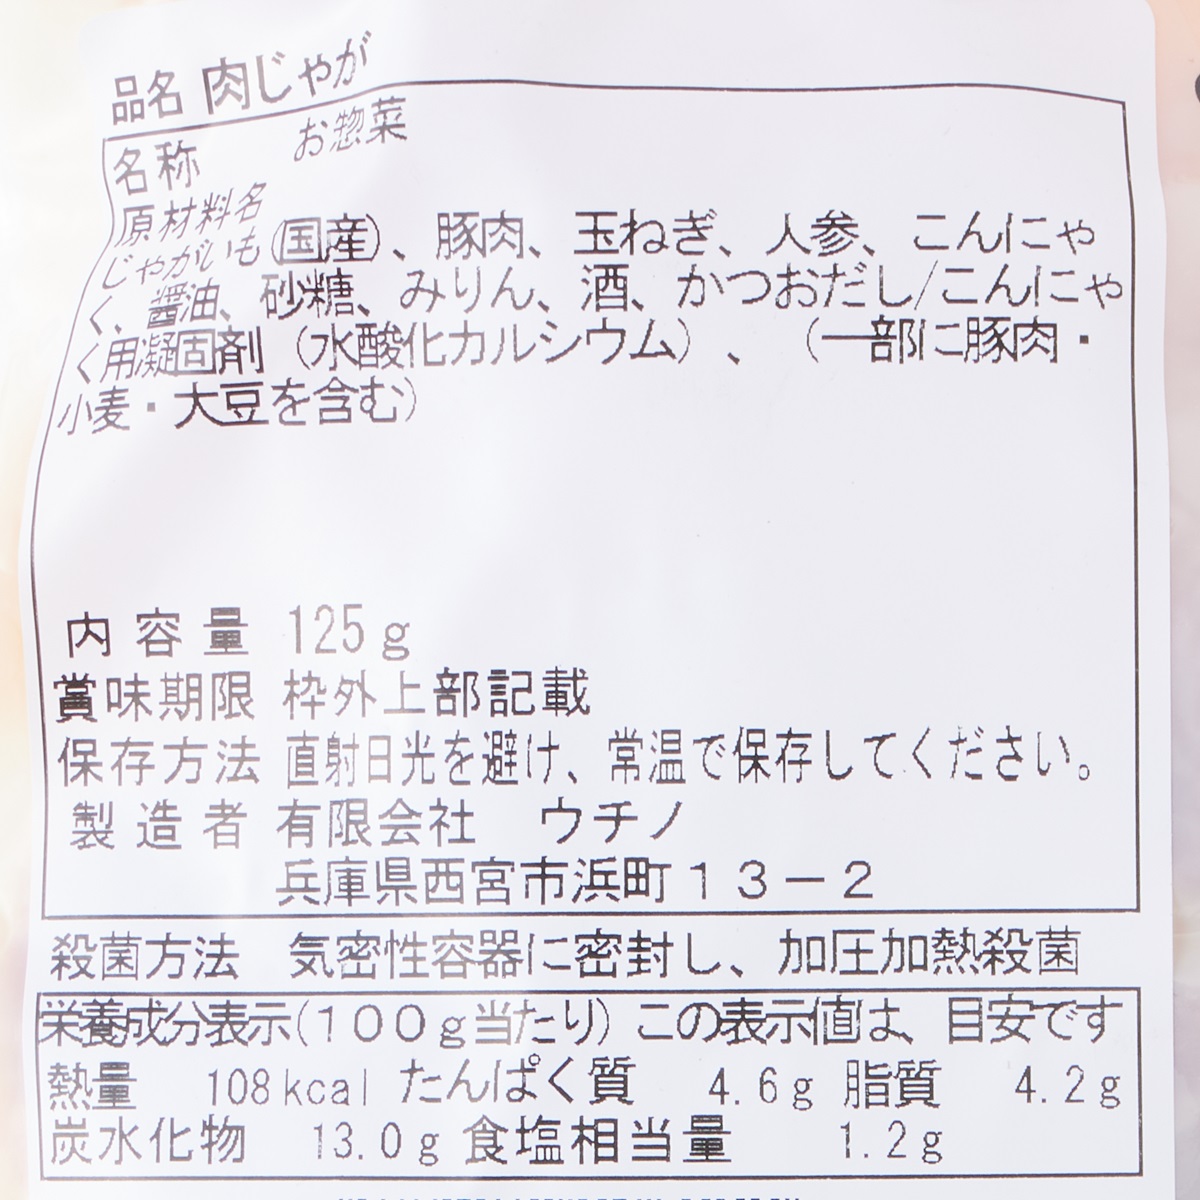 品名 肉じゃが
名称 お惣菜
原材料名
じゃがいも(国産)、豚肉、玉ねぎ、人参、こんにゃ
く、醤油、砂糖、みりん、酒、かつおだし/こんにゃ
く用凝固剤(水酸化カルシウム)、(一部に豚肉・
小麦・大豆を含む)
内容量 125g
賞味期限 枠外上部記載
保存方法 直射日光を避け、常温で保存してください。
製造者 有限会社 ウチノ
兵庫県西宮市浜町13-2
殺菌方法 気密性容器に密封し、加圧加熱殺菌
栄養成分表示(100g当たり)この表示値は、目安です
熱量 108kcal たんぱく質 4.6g 脂質 4.2g
炭水化物 13.0g 食塩相当量 1.2g